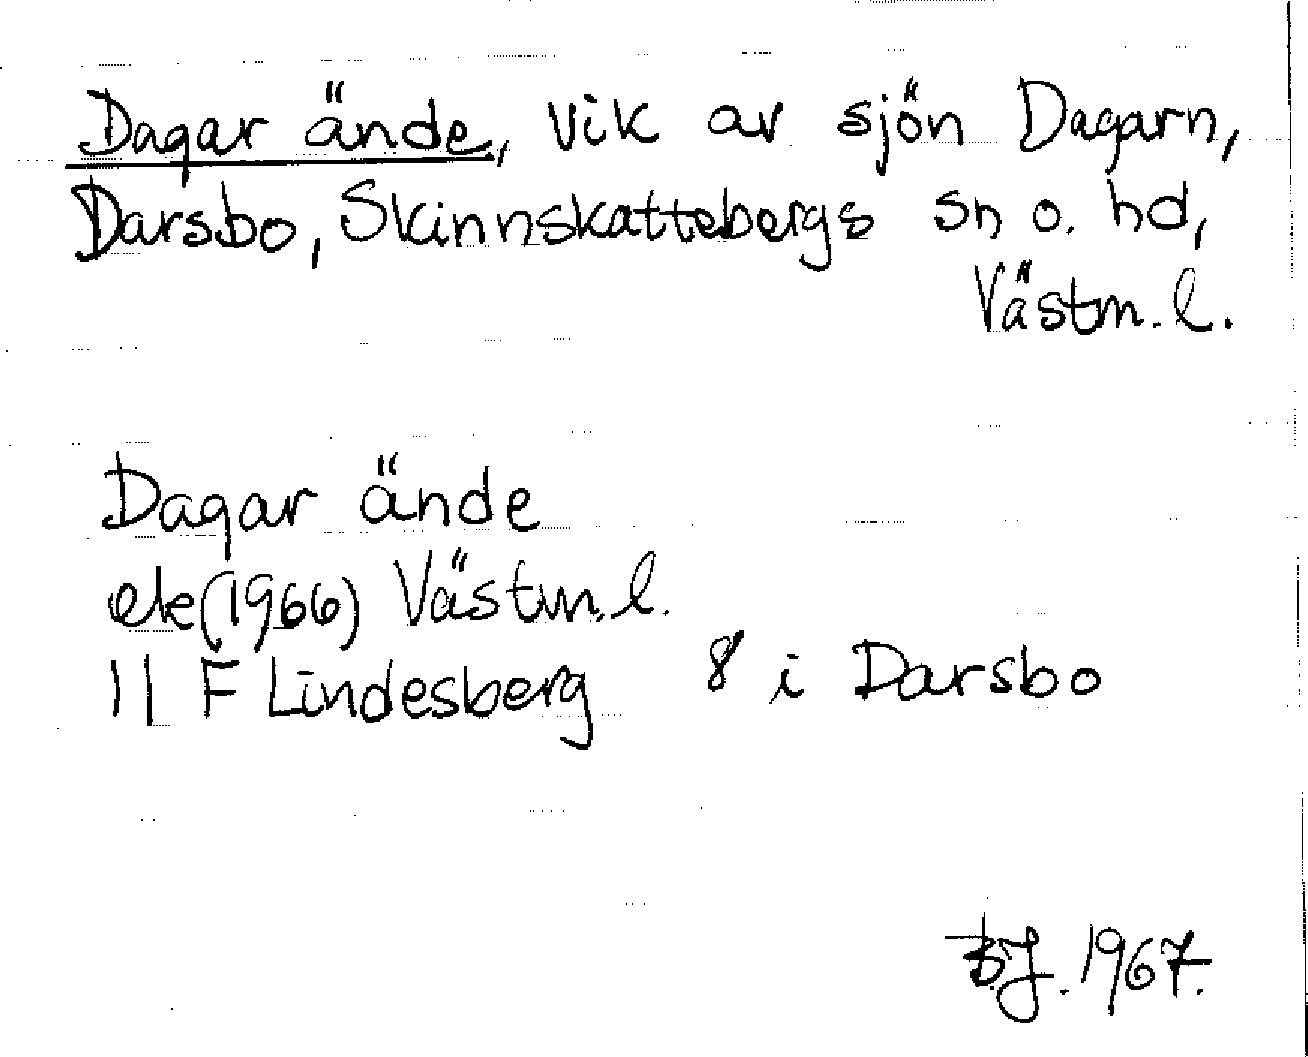 Dagar ände, vik av sjön Dagarn,
Darsbo, Skinnskattebergs sn o. hd,
Västm. l.
Dagar ände
ek (1966) Västm. l.
11 F Lindesberg 8 i Darsbo
B.J. 1967.